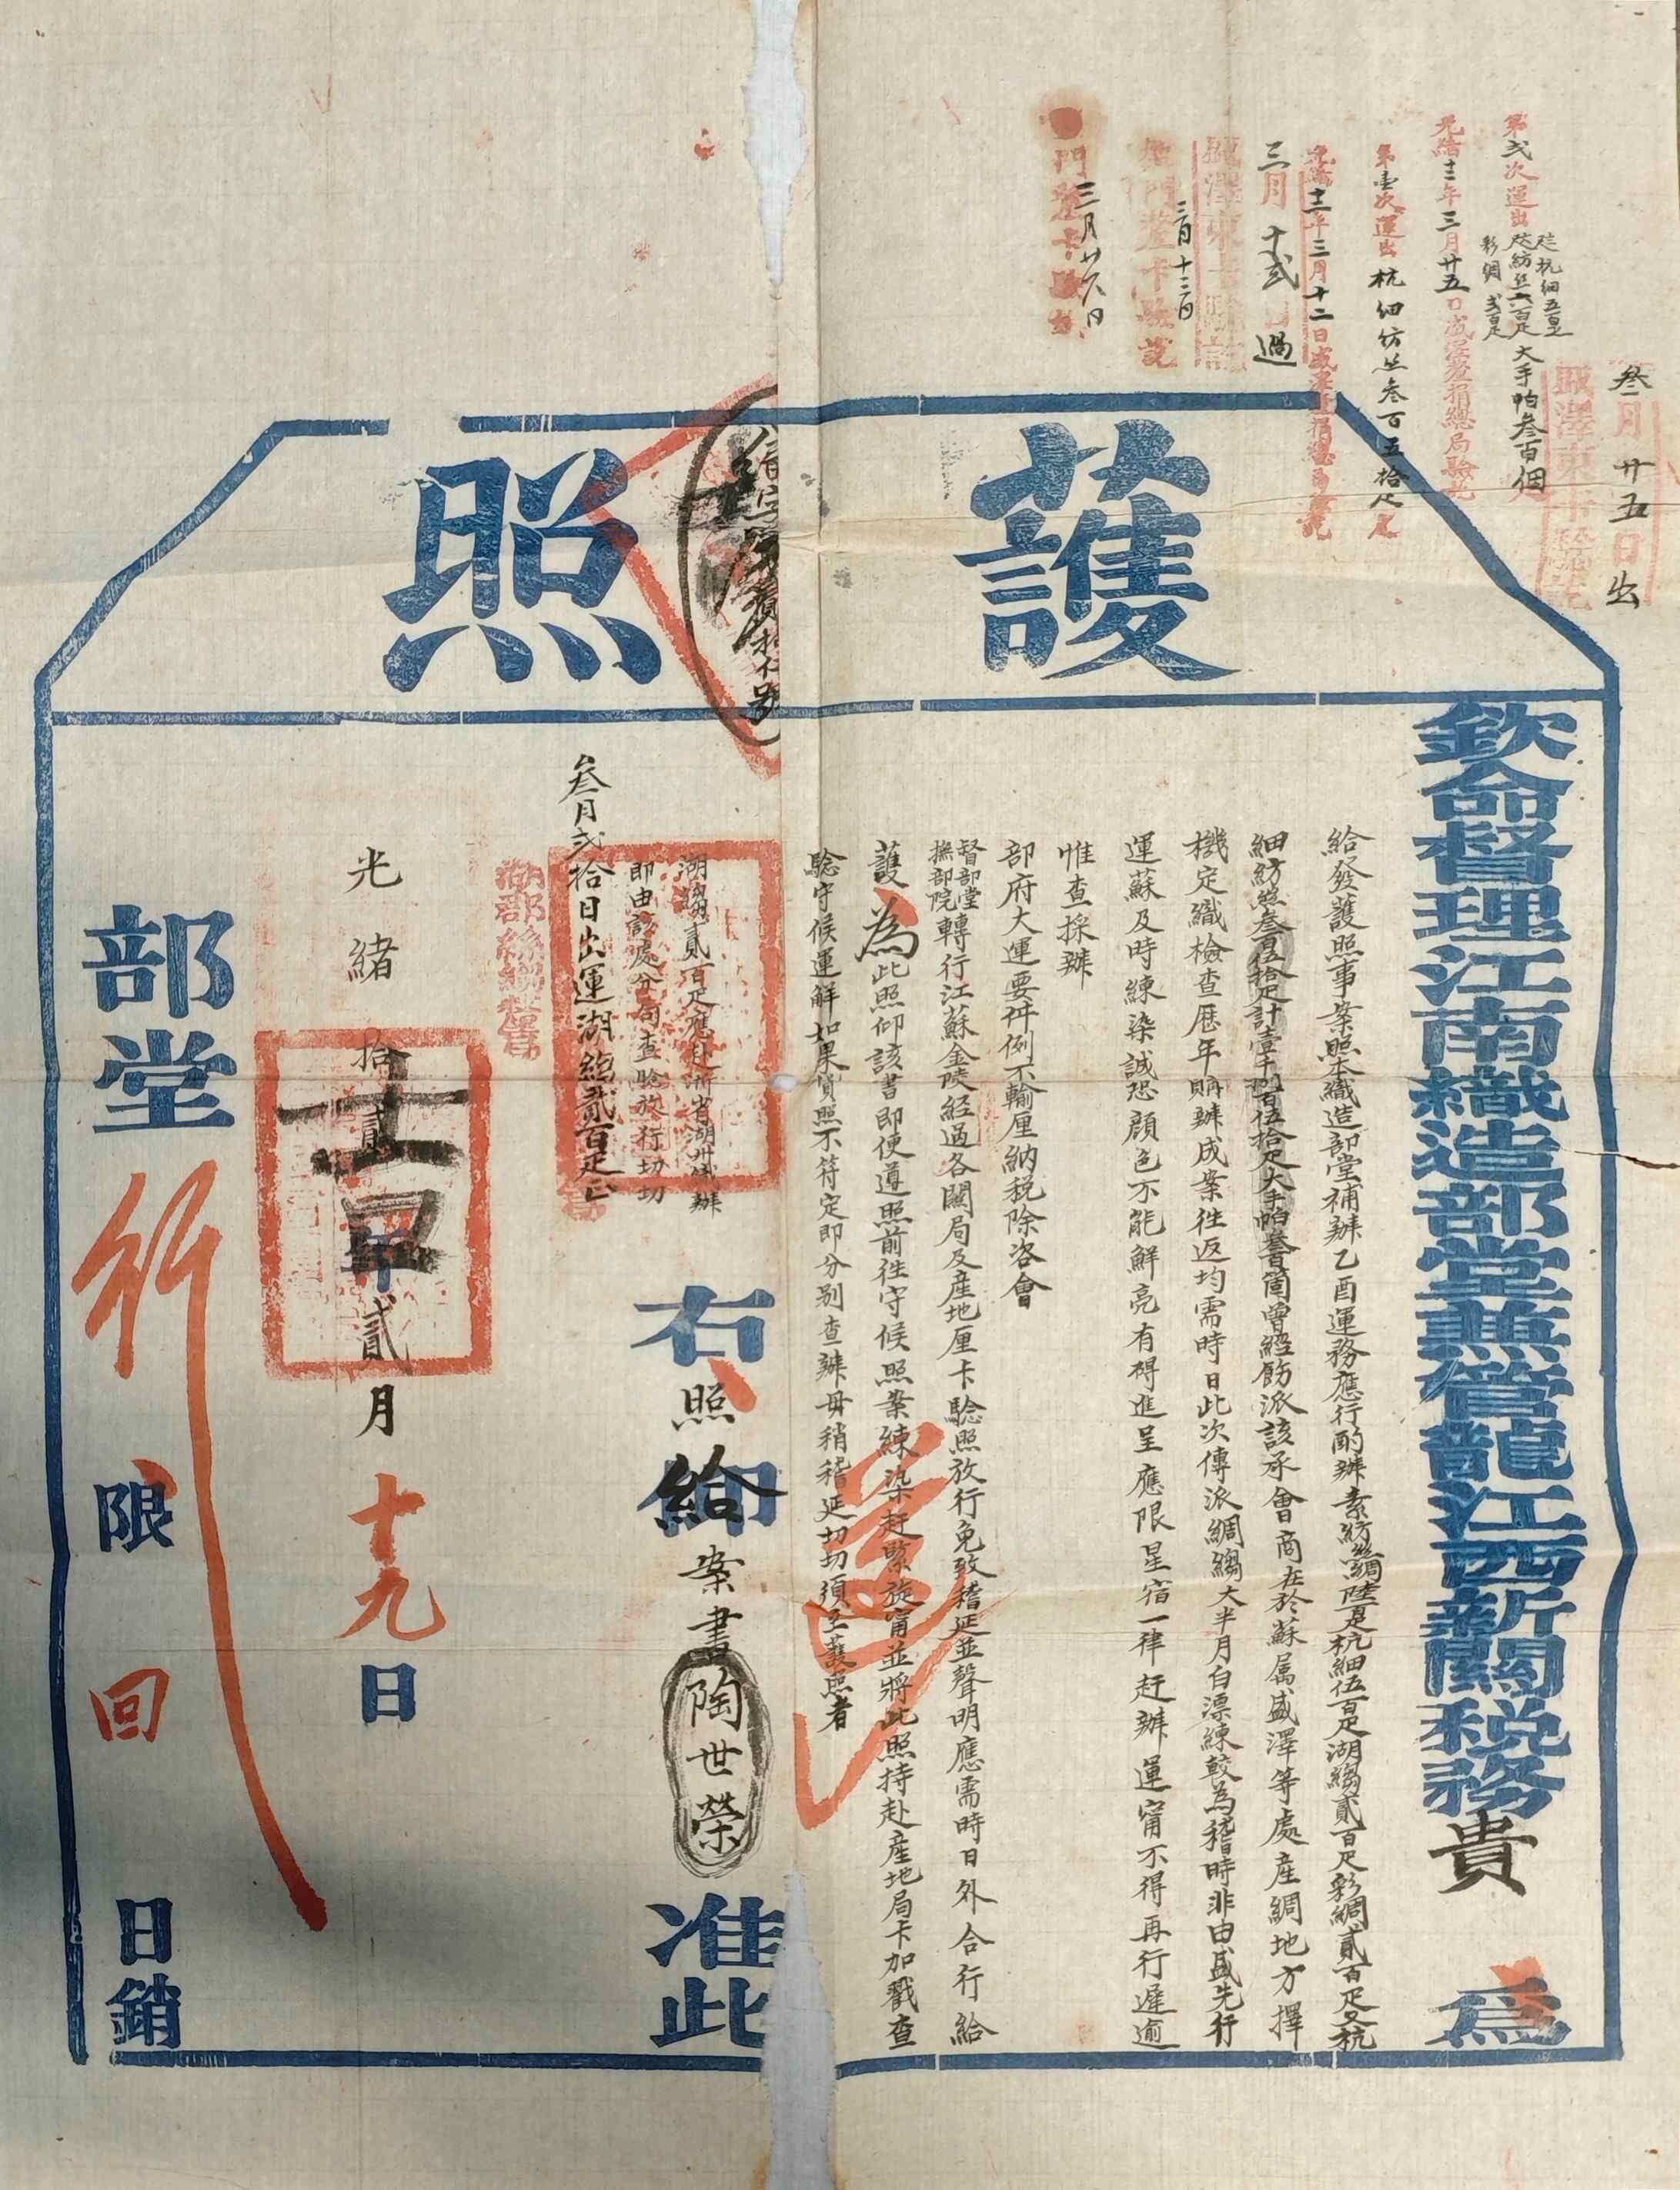 護照
欽命督理江南織造部堂兼管龍江西新關税務貴 為
給發護照事案照本織造部堂補辦乙酉運務應行酌辦素紡絲綢陸百疋杭細伍百疋湖縐貳百疋彩綢貳百疋又杭
細紡絲叁百伍拾疋計壹千捌百伍拾疋大手帕叁百箇曾經飭派該承會商在於蘇属盛澤等處産綢地方擇
機定織檢查歷年購辦成案往返均需時日此次傳派綢縐大半月白漂練較為稽時非由盛先行
運蘇及時練染誠恐顔色不能鮮亮有碍進呈應限星宿一律赶辦運甯不得再行遲逾
惟查採辦
部府大運要件例不輸厘納税除咨會
督部堂
撫部院轉行江蘇金陵經過各關局及産地厘卡騐照放行免致稽延並聲明應需時日外合行給
護為此照仰該書即便遵照前往守候照案練染赶緊旋甯並將此照持赴産地局卡加戳查
騐守候運解如果貨照不符定即分别查辦毋稍稽延切切須至護照者
右照給案書陶世榮准此
湖縐貳百疋應赴浙省湖州織辦
即由該處分局查騐放行切切
叁月弍拾日出運湖縐貳百疋正
光緒拾貳年貳月十九日
部堂行
限回日銷
叁月廿五日出
第弍次運出
杭細五百疋
紡絲六百疋
彩綢弍百疋
大手帕叁百個
光緒十二年三月廿五日盛澤釐捐總局驗訖
第壹次運出杭細紡絲叁百五拾疋
光緒十二年三月十二日盛澤釐捐總局驗訖
三月十弍日過
盛澤東卡驗訖
三月十三日
三月廿六日